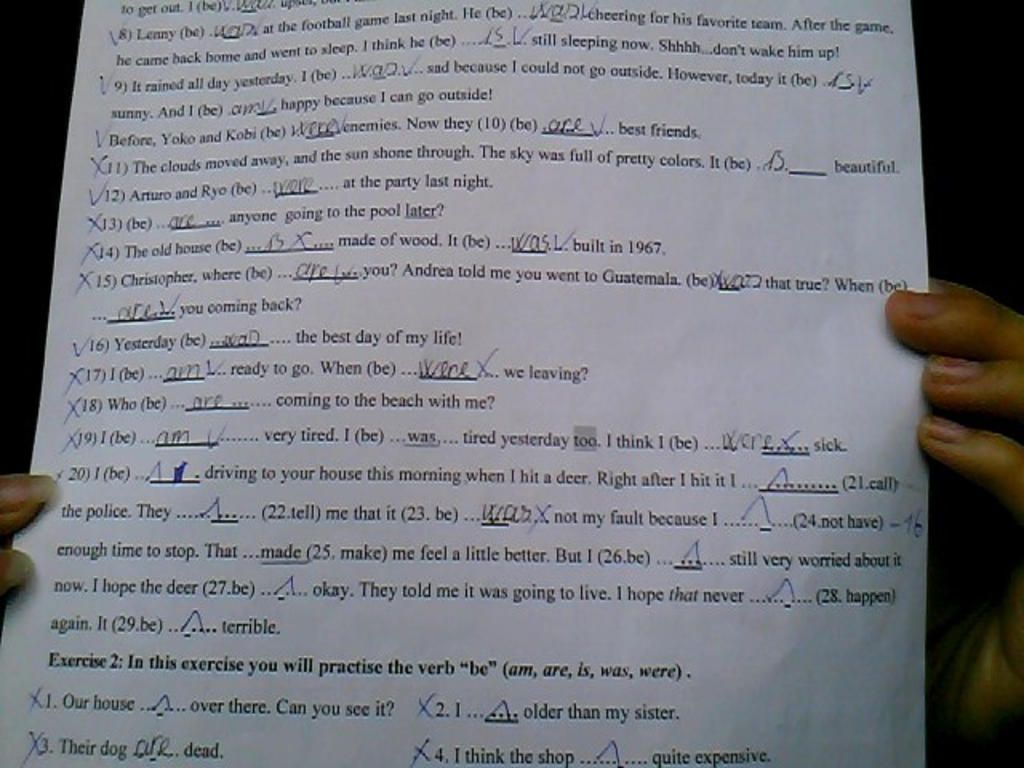 to get out. I (be) was upset, but I
8) Lenny (be) was at the football game last night. He (be) ..was cheering for his favorite team. After the game,
he came back home and went to sleep. I think he (be) ....is... still sleeping now. Shhhh...don't wake him up!
9) It rained all day yesterday. I (be) ..was.... sad because I could not go outside. However, today it (be) .is..
sunny. And I (be) am.. happy because I can go outside!
Before, Yoko and Kobi (be) were enemies. Now they (10) (be) .are... best friends.
11) The clouds moved away, and the sun shone through. The sky was full of pretty colors. It (be) .is.____ beautiful.
12) Arturo and Ryo (be) ..were.... at the party last night.
13) (be) ..are.... anyone going to the pool later?
14) The old house (be) ...is...... made of wood. It (be) ...was.. built in 1967.
15) Christopher, where (be) ...are... you? Andrea told me you went to Guatemala. (be) was that true? When (be)
...are.. you coming back?
16) Yesterday (be) ..was.... the best day of my life!
17) I (be) ...am.. ready to go. When (be) ...were... we leaving?
18) Who (be) ...are....... coming to the beach with me?
19) I (be) ...am........ very tired. I (be) ...was.... tired yesterday too. I think I (be) ...were... sick.
20) I (be) ...... driving to your house this morning when I hit a deer. Right after I hit it I ............ (21.call)
the police. They .......... (22.tell) me that it (23. be) ...was not my fault because I ..........(24.not have) -16
enough time to stop. That ...made (25. make) me feel a little better. But I (26.be) ......... still very worried about it
now. I hope the deer (27.be) ...... okay. They told me it was going to live. I hope that never ......... (28. happen)
again. It (29.be) ...... terrible.
Exercise 2: In this exercise you will practise the verb "be" (am, are, is, was, were) .
1. Our house ...... over there. Can you see it? 2. I ...... older than my sister.
3. Their dog are. dead. 4. I think the shop .......... quite expensive.